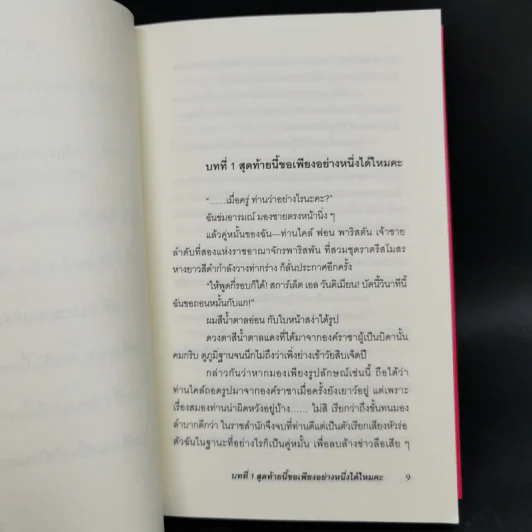 บทที่ 1 สุดท้ายนี้ขอเพียงอย่างหนึ่งได้ไหมคะ
“……เมื่อครู่ ท่านว่าอย่างไรนะคะ?”
ฉันข่มอารมณ์ มองชายตรงหน้านิ่ง ๆ
แล้วคู่หมั้นของฉัน—ท่านไคล์ ฟอน พาริสตัน เจ้าชาย
ลำดับที่สองแห่งราชอาณาจักรพาริสพัน ที่สวมชุดราตรีสโมสร
หางยาวสีดำกำลังวางท่ากร่าง ก็ลั่นประกาศอีกครั้ง
“ให้พูดกี่รอบก็ได้! สการ์เล็ต เอล วันดิเมียน! บัดนี้วินาทีนี้
ฉันขอถอนหมั้นกับแก!”
ผมสีน้ำตาลอ่อน กับใบหน้าสง่าได้รูป
ดวงตาสีน้ำตาลแดงที่ได้มาจากองค์ราชาผู้เป็นบิดานั้น
คมกริบ ดูภูมิฐานจนนึกไม่ถึงว่าเพิ่งย่างเข้าวัยสิบเจ็ดปี
กล่าวกันว่าหากมองเพียงรูปลักษณ์เช่นนี้ ถือได้ว่า
ท่านไคล์ถอดรูปมาจากองค์ราชาเมื่อครั้งยังเยาว์อยู่ แต่เพราะ
เรื่องสมองท่านน่าผิดหวังอยู่บ้าง…… ไม่สิ เรียกว่าถึงขั้นทนมอง
ลำบากดีกว่า ในราชสำนักจึงจบที่ท่านดีแต่เป็นตัวเรียกเสียงหัวร่อ
ตัวฉันในฐานะที่อย่างไรก็เป็นคู่หมั้น เพื่อลบล้างข่าวลือเสีย ๆ
บทที่ 1 สุดท้ายนี้ขอเพียงอย่างหนึ่งได้ไหมคะ 9